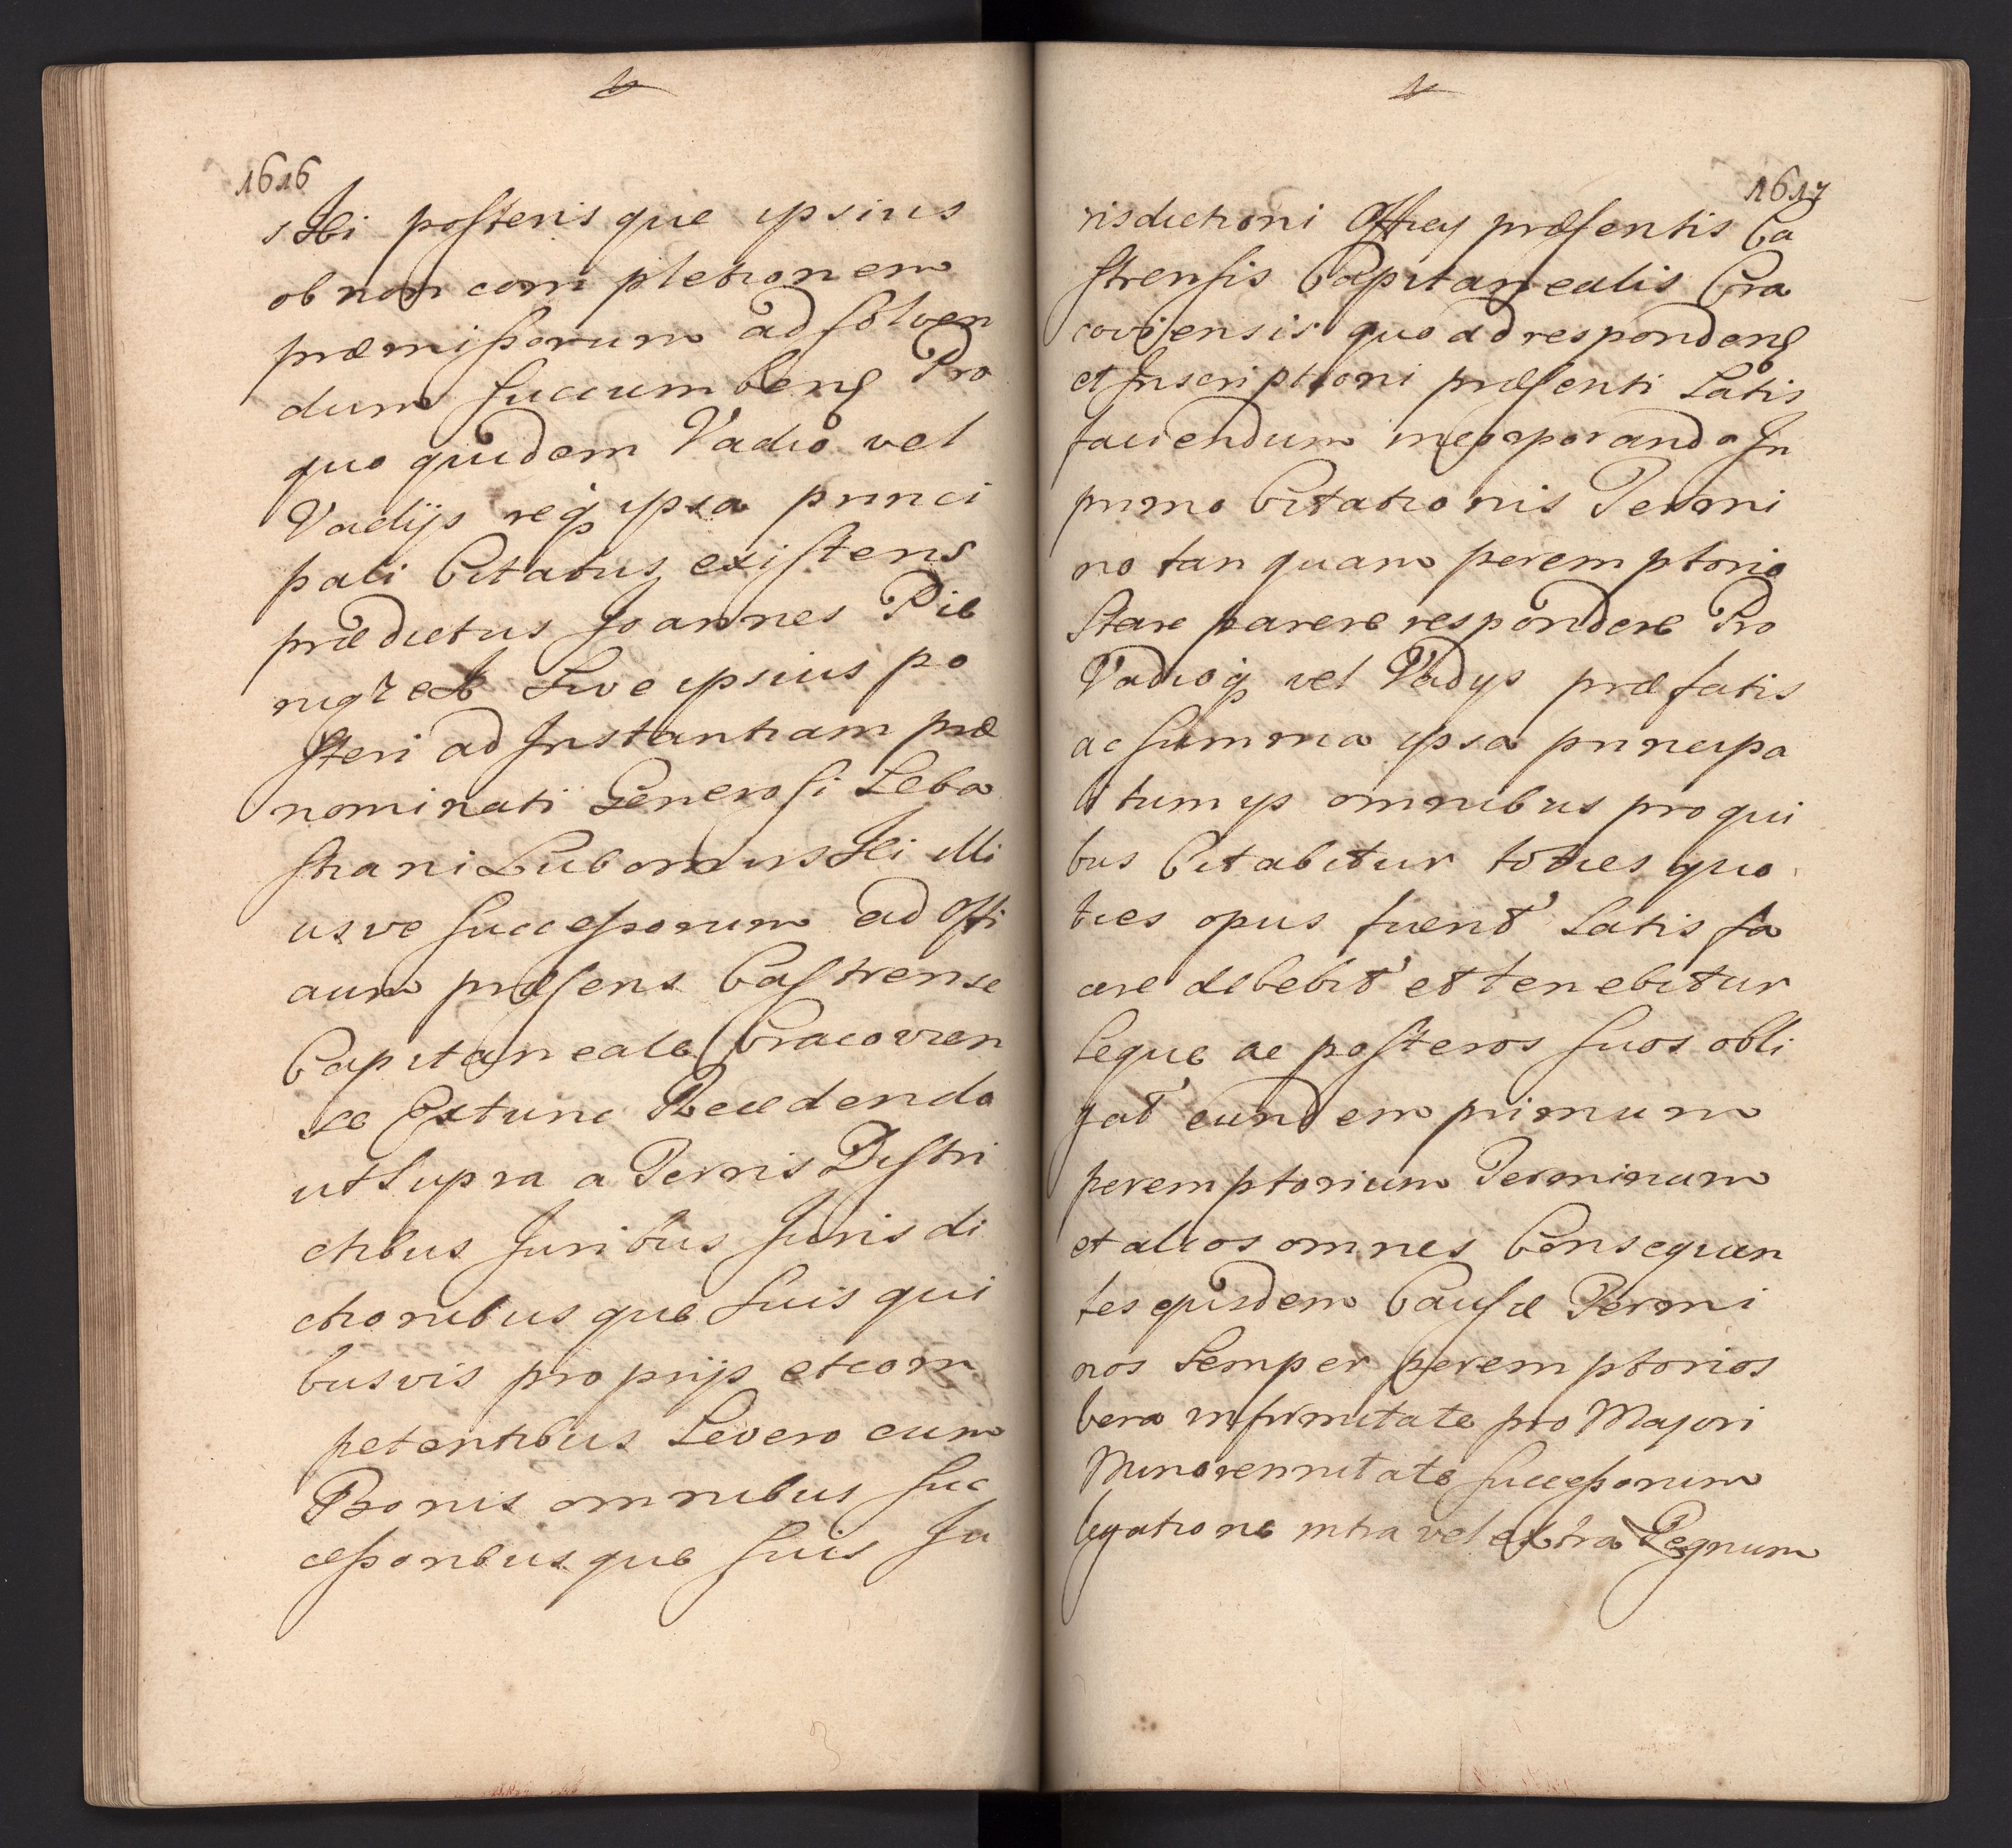 1616
sski posterisque ipsius
ob non completionem
præmissorum ad solven
dum succumben Pro
quo quidem Vadio vel
Vadijs reqꝫ ipsa princi
pali Citatus existens
prædictus Joannes Pie
niązek Sive ipsius po
steri ad Instantiam præ
nominati Generosi Seba
stiani Lubomirski illi
usve successorum ad Offi
cium præsens Castrense
Capitaneale Cracovien
se Extunc Recedendo
ut Supra a Terris Distri
ctibus Juribus Jurisdi
ctionibusque Suis qui
busvis proprijs et com
petentibus Severo cum
Bonis omnibus suc
cessoribusque suis Ju
1617
risdictioni Officij præsentis Ca
strensis Capitanealis Cra
coviensis quo ad responden
et Inscriptioni præsenti Satis
faciendum incorporando In
primo Citationis Termi
no tanquam peremptorio
Stare parere respondere Pro
Vadioqꝫ vel Vadijs præfatis
ac summa ipsa principa
li tum ijs omnibus pro qui
bus Citabitur toties quo
ties opus fuerit Satis fa
cere debebit et tenebitur
seque ac posteros suos obli
gat eundem primum
peremptorium Terminum
et alios omnes Consequen
tes ejusdem Causæ Termi
nos Semper peremptorios
vera infirmitate pro Majori
Minorennitate successorum
legatione intra vel extra Regnum